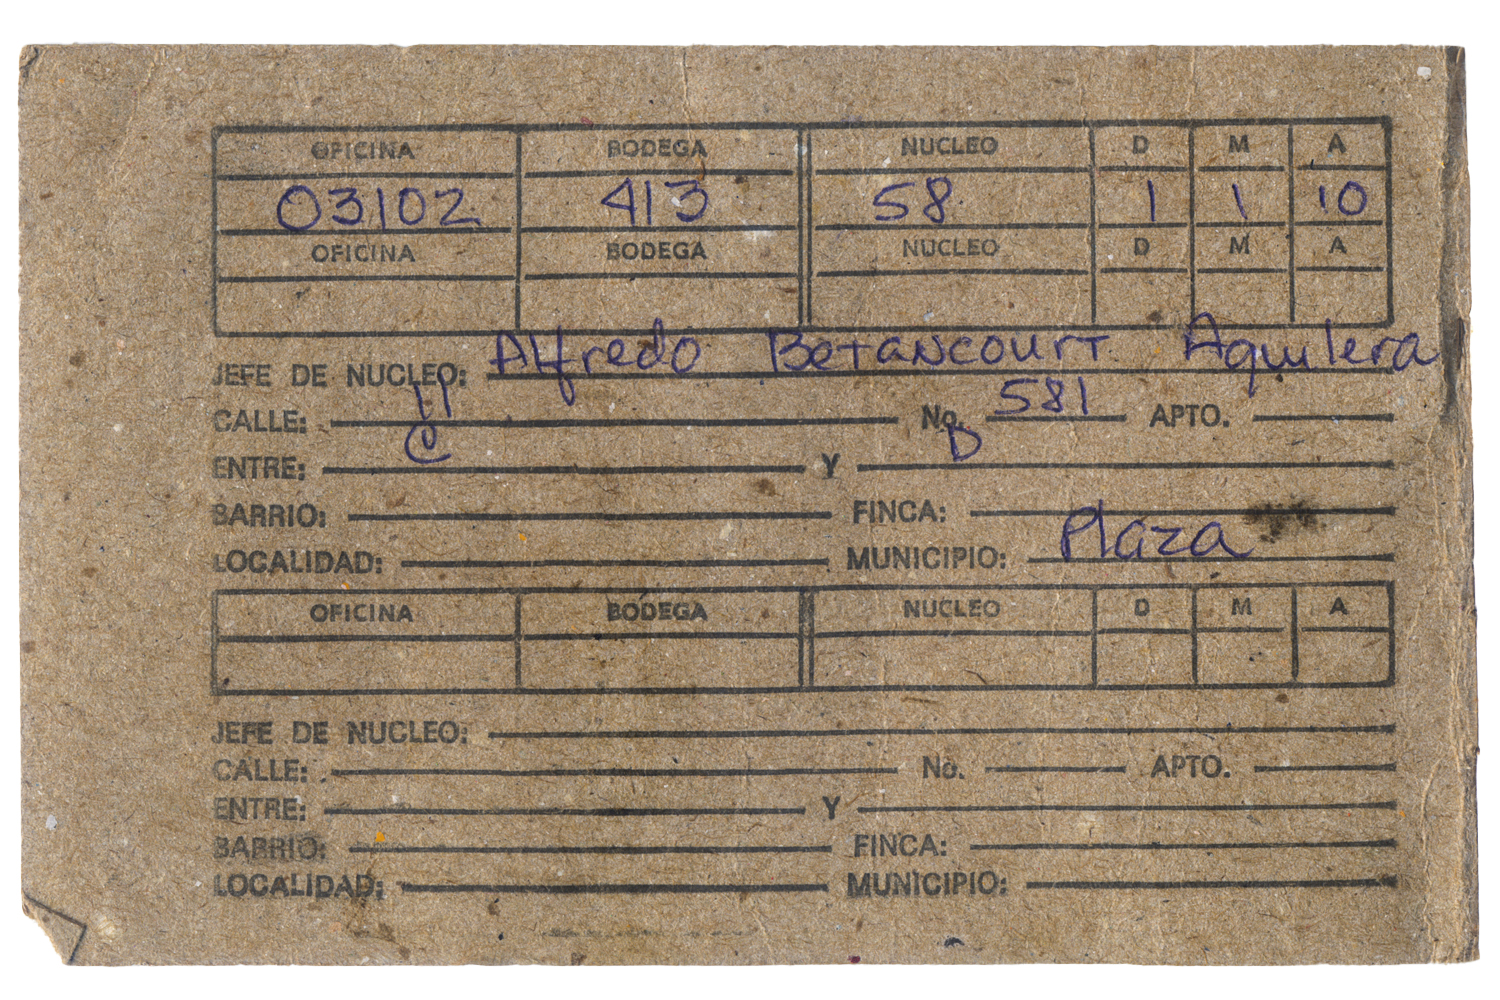 OFICINA BODEGA NUCLEO D M A
03102 413 58 1 1 10
OFICINA BODEGA NUCLEO D M A
JEFE DE NUCLEO: Alfredo Betancourt Aguilera
CALLE: 11 No. 581 APTO.
ENTRE: C Y D
BARRIO: FINCA:
LOCALIDAD: MUNICIPIO: Plaza
OFICINA BODEGA NUCLEO D M A
JEFE DE NUCLEO:
CALLE: No. APTO.
ENTRE: Y
BARRIO: FINCA:
LOCALIDAD: MUNICIPIO: